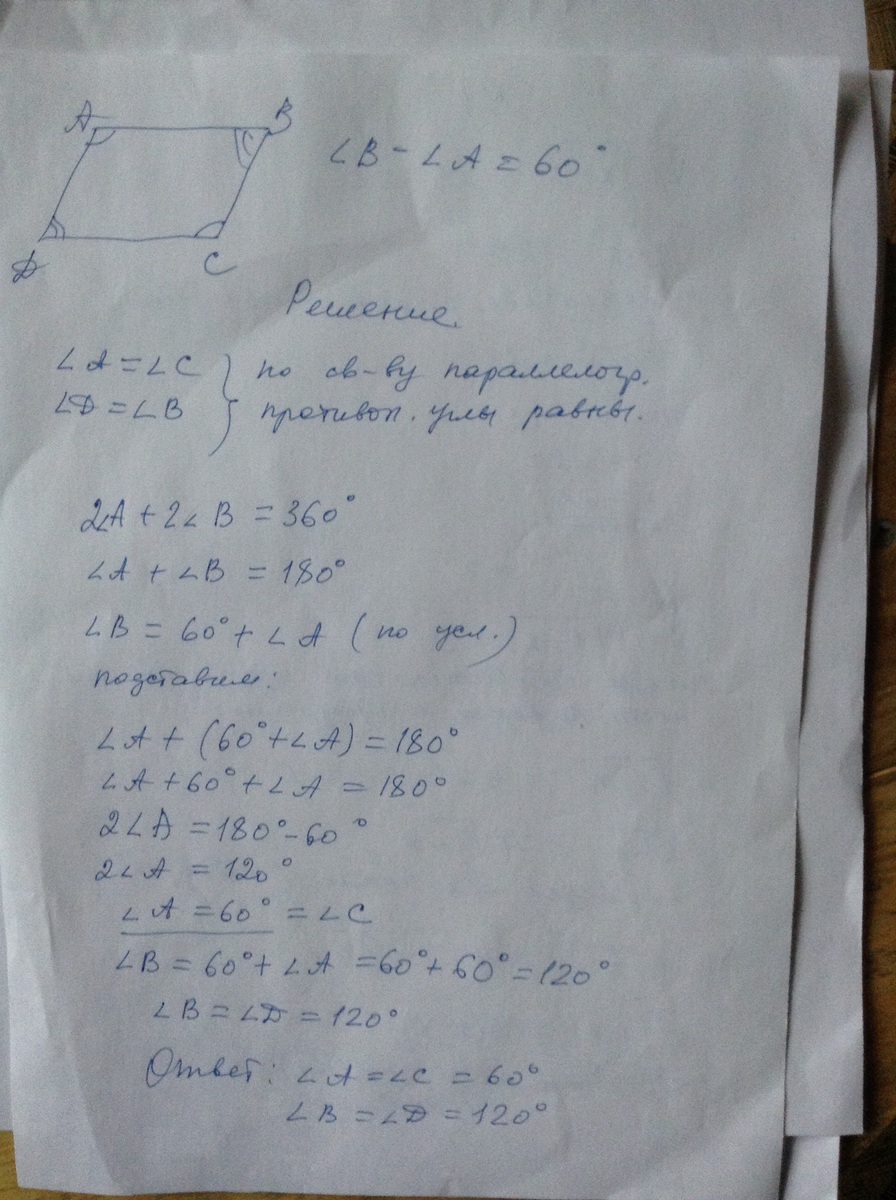 A B
∠B - ∠A = 60°
D C
Решение.
∠A = ∠C } по св-ву параллелогр.
∠D = ∠B } противоп. углы равны.
2∠A + 2∠B = 360°
∠A + ∠B = 180°
∠B = 60° + ∠A (по усл.)
подставим:
∠A + (60° + ∠A) = 180°
∠A + 60° + ∠A = 180°
2∠A = 180° - 60°
2∠A = 120°
∠A = 60° = ∠C
∠B = 60° + ∠A = 60° + 60° = 120°
∠B = ∠D = 120°
Ответ: ∠A = ∠C = 60°
∠B = ∠D = 120°